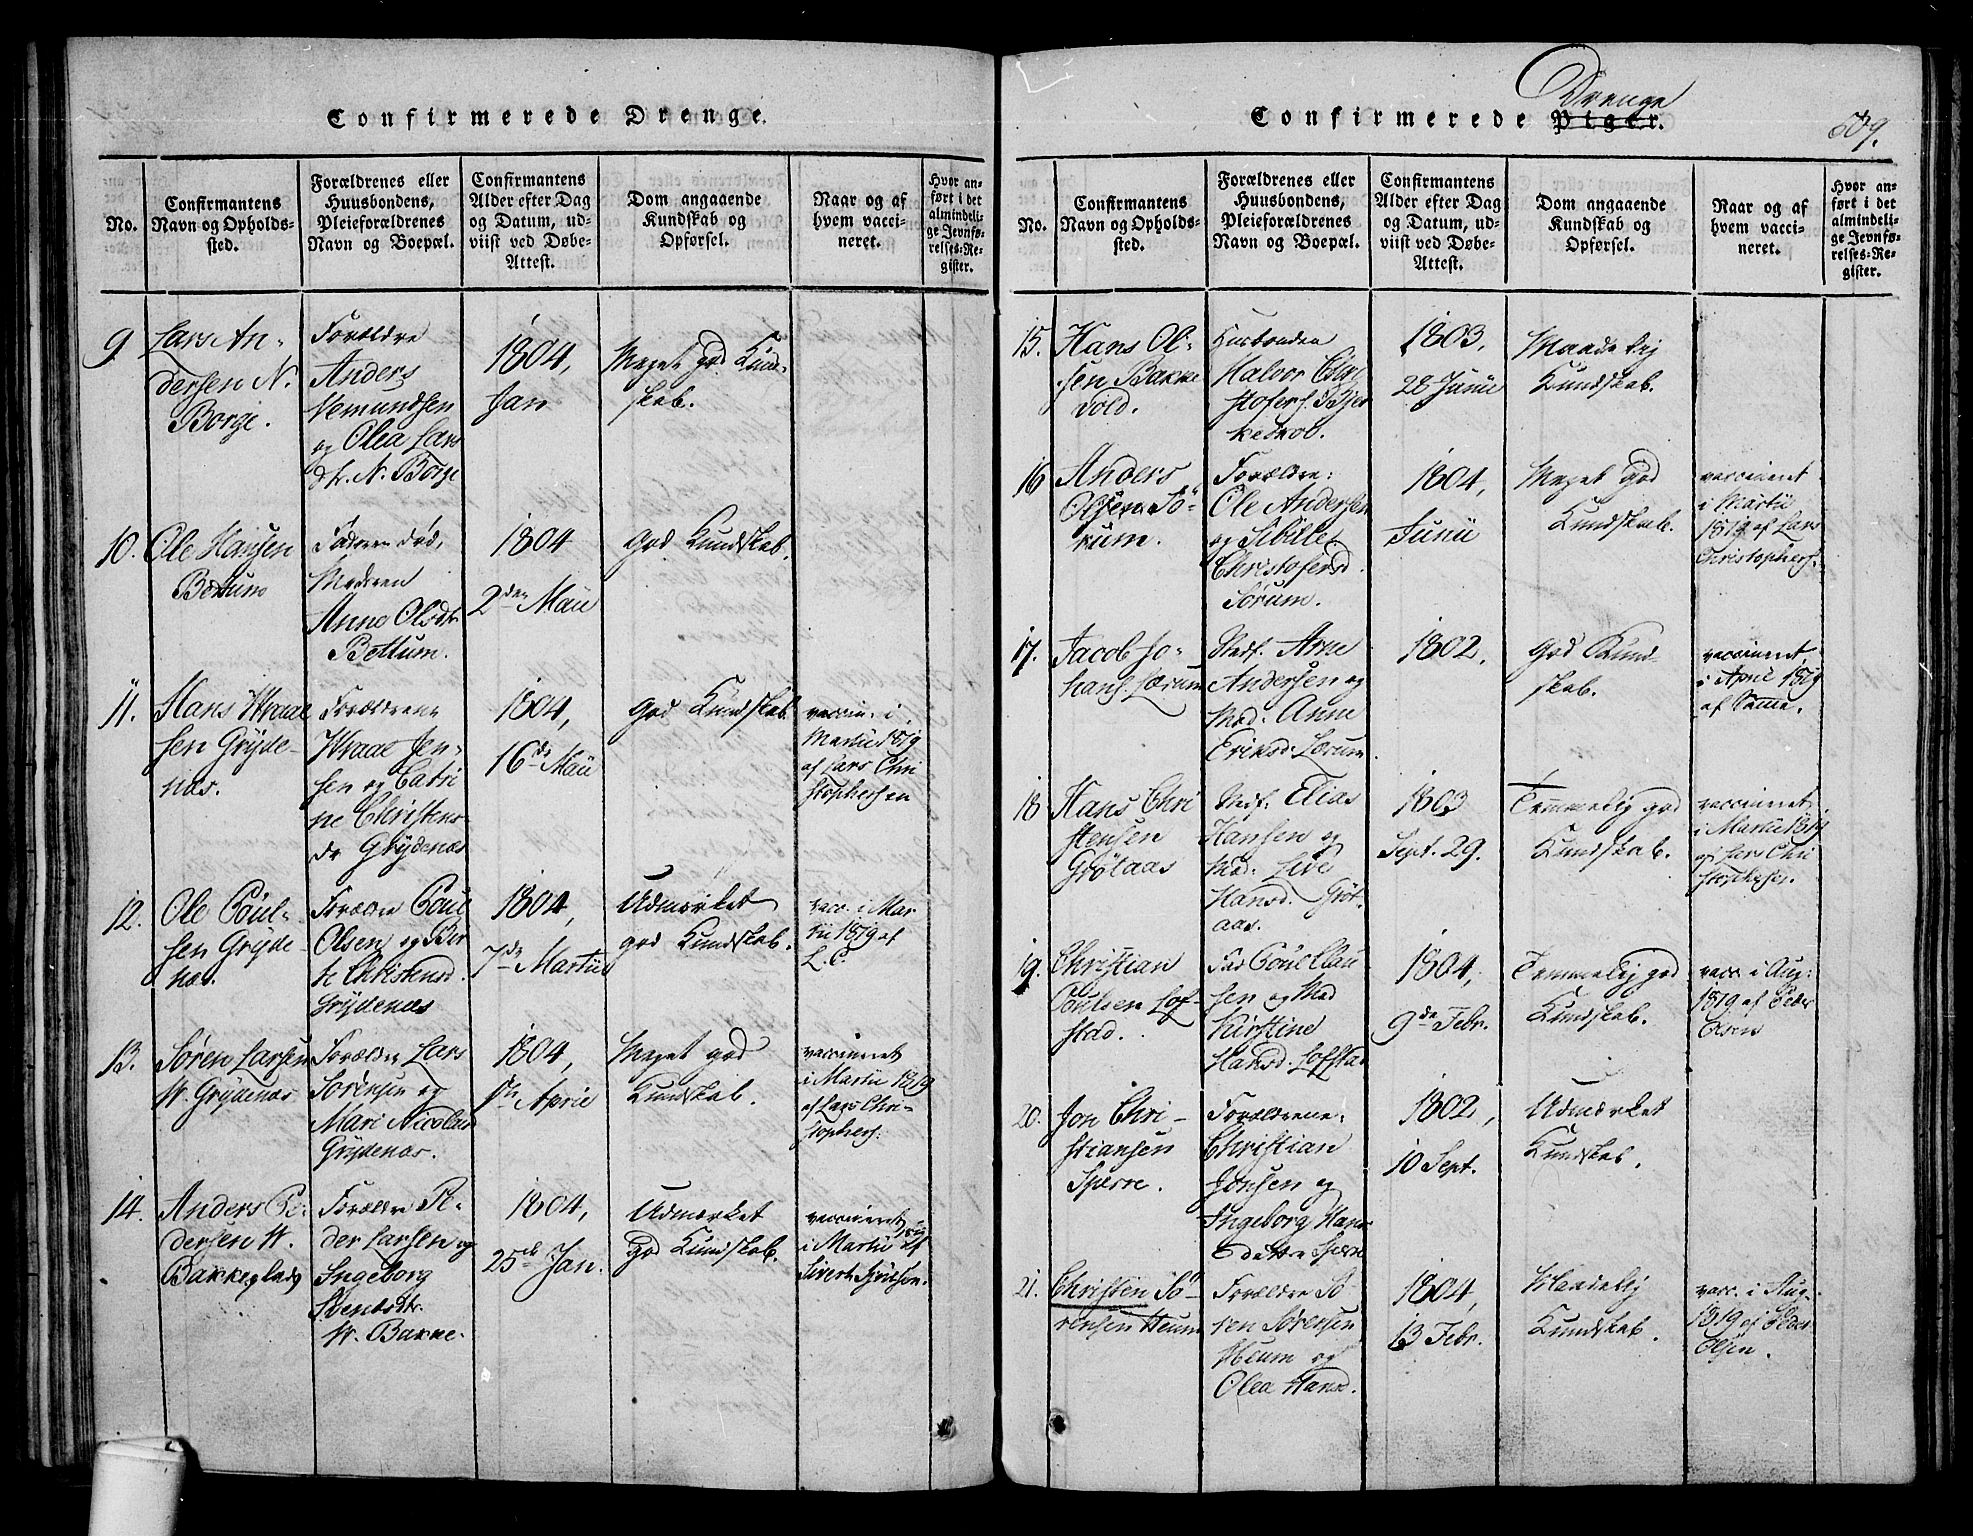 Confirmerede Drenge.
No.
Confirmantens
Navn og Opholds-
sted.
Forældrenes eller
Huusbondens,
Pleieforældrenes
Navn og Boepæl.
Confirmantens
Alder efter Dag
og Datum, ud-
viist ved Døbe-
Attest.
Dom angaaende
Kundskab og
Opførsel.
Naar og af
hvem vacci-
neret.
Hvor an-
ført i det
almindeli-
ge Jevnfø-
relses-Re-
gister.
9
Lars An-
dersen N.
Borge.
Forældre
Anders
Nemundsen
og Olea Lars
dtr. N. Borge
1804,
Jan
Meget god Kund-
skab.
10.
Ole Hansen
Bettum
Faderen død,
Moderen
Anne Olsdtr
Bettum.
1804
2den Maii
God Kundskab.
11.
Hans Wraal
sen Gryde-
næs.
Forældrene
Wraal Jen-
sen og Catri
ne Christens-
dr Grydenæs
1804,
16de Maii
God Kundskab
vaccin. i
Martii 1819
af Lars Chri
stophersen
12.
Ole Poul-
sen Gryde-
næs.
Forældre Poul
Olsen og Ber
te Christensd.
Grydenæs
1804,
7de Martii
Udmærket
god Kundskab.
vacc. i Mar
tii 1819 af
L. C.
13.
Søren Larsen
W. Grydenæs
Forældre Lars
Sørensen og
Mari Nicolai
Grydenæs.
1804,
Aprie
Meget god
Kundskab.
vaccineret
i Martii 1819
af Lars Chri-
stophers:
14.
Anders Pe-
dersen W.
Bakkeplads
Forældre Pe-
der Larsen og
Ingeborg
Svensdtr.
W. Bakke.
1804,
25de Jan.
Udmærket
God Kundskab.
vaccineret
i Martii af
Sivert
Confirmerede Piger.
Drenge
509.
No.
Confirmantens
Navn og Opholds-
sted.
Forældrenes eller
Huusbondens,
Pleieforældrenes
Navn og Boepæl.
Confirmantens
Alder efter Dag
og Datum, ud-
viist ved Døbe-
Attest.
Dom angaaende
Kundskab og
Opførsel.
Naar og af
hvem vacci-
neret.
Hvor an-
ført i det
almindeli-
ge Jevnfø-
relses-Re-
gister.
15.
Hans Ol-
sen Bakke
vold.
Husbonden
Halvor Chri
stofers. Bjer
keskov.
1803,
28 Junii
Maadelig
Kundskab.
16
Anders
Olsen Sö-
rum.
Forældre:
Ole Andersen
og Sibille
Christofersd.
Sørum.
1804,
Junii
Meget god
Kundskab.
vaccineret
i Martii
1819 af Lars
Christophers.
17.
Jacob Jo-
hans. Lørum
Arne
Andersen og
Mod. Anne
Eriksd. Lørum
1802.
God Kund-
skab.
vaccineret
i April 1819
af Samme.
18
Hans Chri
stensen
Grøtaas
Elias
Hansen og
Mod. Live
Hansd. Gröt-
aas.
1803
Sept. 29.
Temmelig god
Kundskab.
vaccineret
i Martii 1819
af Lars Chri
stophersen.
19.
Christian
Poulsen Lof-
stad.
Fad Poul Clau
sen og Mod
Kirstine
Hansd. Lofstad
1804,
9de Febr.
Temmelig god
Kundskab.
vacc. i Aug:
1819 af Peder
Olsen
20.
Jon Chri-
stiansen
Spærre.
Forældrene:
Christian
Jonsen og
Ingeborg Hans
datter Spærre
1802,
10 Sept.
Udmærket
Kundskab.
21.
Christen Sö-
rensen Heum
Forældre Sö
ren Sörensen
Heum og
Olea Hansd.
1804,
13 Febr.
Maadelig
Kundskab.
vacc. i Aug-
1819 af Peder
Olsen.